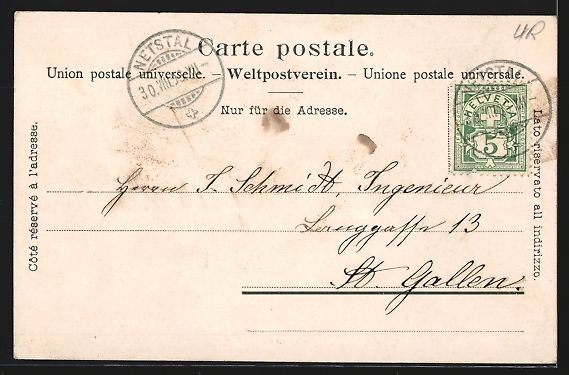 4R
Carte postale.
Union postale universelle. – Weltpostverein. – Unione postale universale.
Nur für die Adresse.
Côté réservé à l'adresse.
Lato riservato all indirizzo.
NETSTAL
HELVETIA
5
Herrn J. Schmidt, Ingenieur
Langgasse 13
St. Gallen.